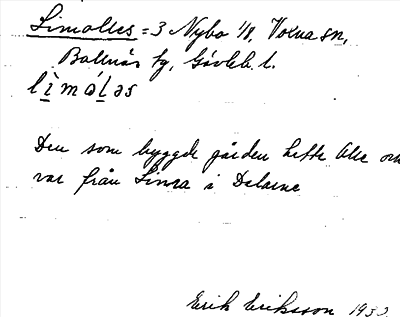 Limolles = 3 Nybo 1/8, Voxna sn,
Bollnäs tg, Gävleb. l.
lìmólas
Den som byggde gården hette Olle och
var från Lima i Dalarne
Erik Eriksson 193